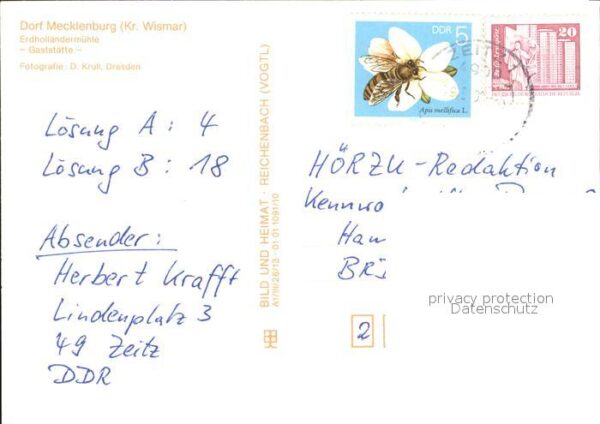 Dorf Mecklenburg (Kr. Wismar)
Erdholländermühle
– Gaststätte –
Fotografie: D. Krull, Dresden
Lösung A: 4
Lösung B: 18
Absender:
Herbert Krafft
Lindenplatz 3
49 Zeitz
DDR
BILD UND HEIMAT · REICHENBACH (VOGTL)
A1/III/26/13 · 01 01 1091/10
DDR 5
Apis mellifica L.
20
ZEITZ
HÖRZU-Redaktion
Kennwo
Ham
privacy protection
Datenschutz
2